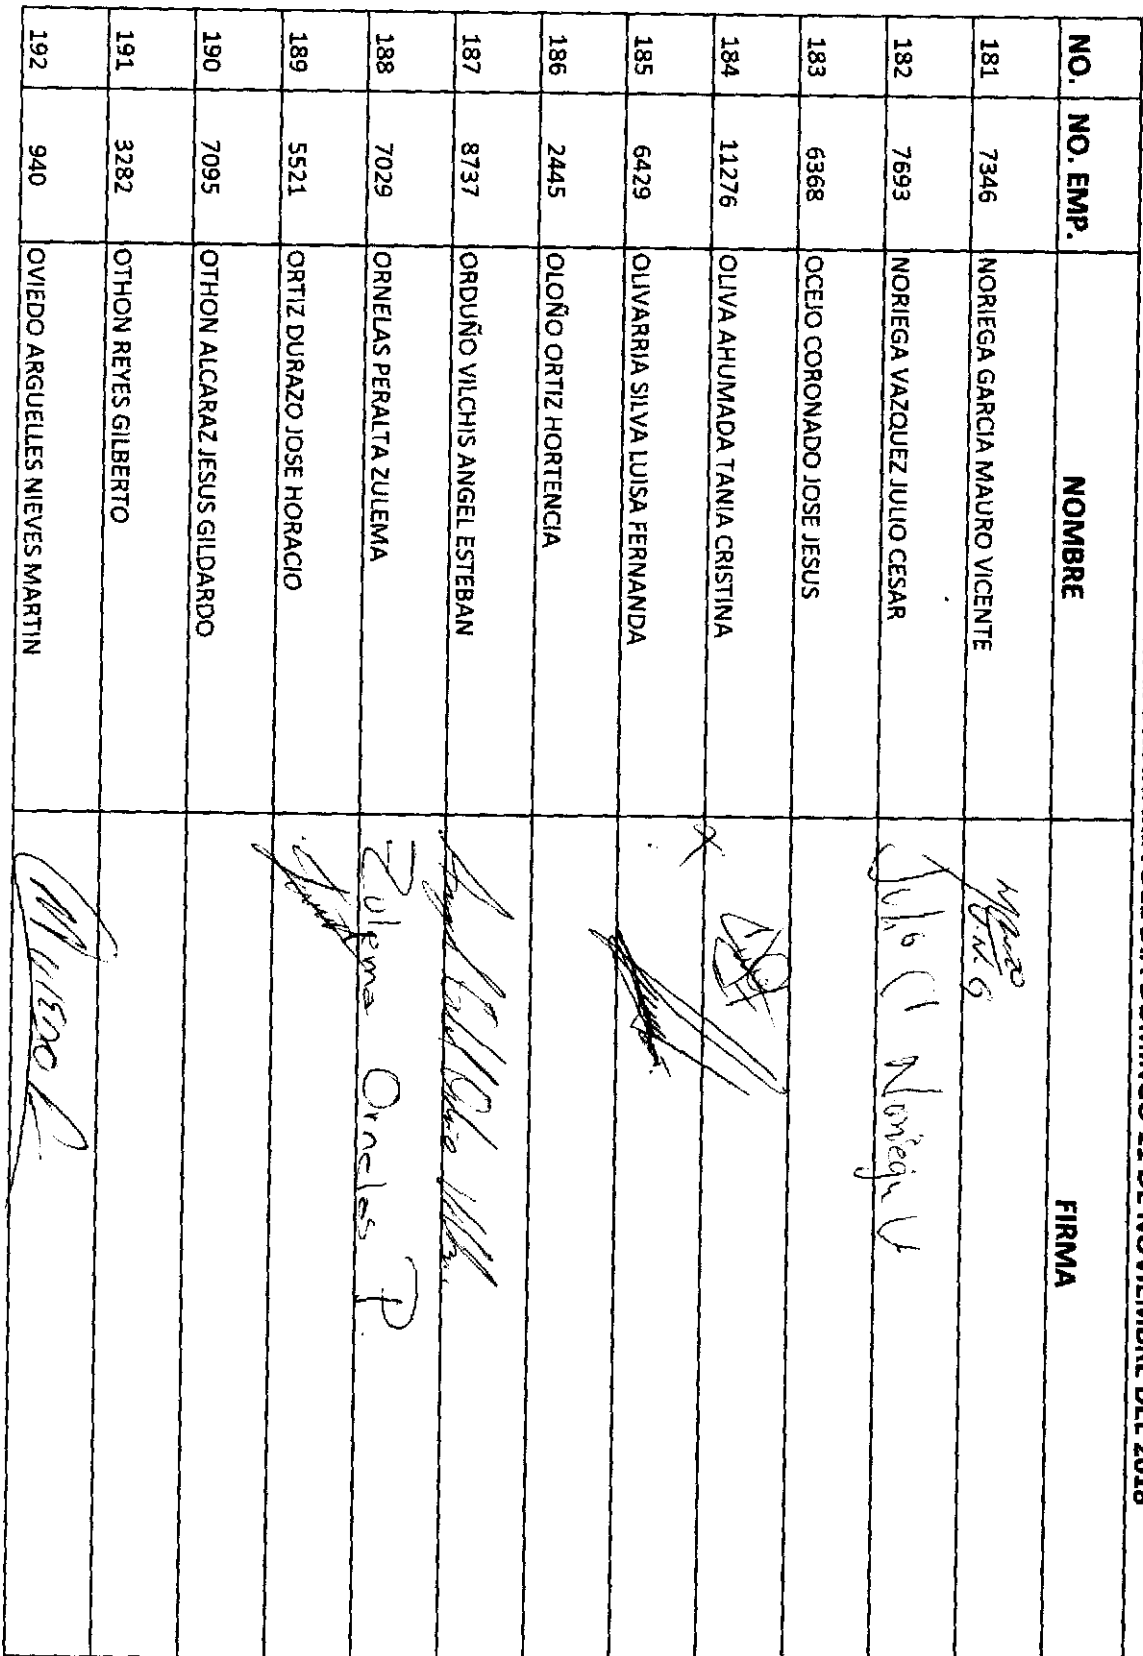 DE NOVIEMBRE DEL 2018
NO. NO. EMP. NOMBRE FIRMA
181 7346 NORIEGA GARCIA MAURO VICENTE Mauro V.N.G
182 7693 NORIEGA VAZQUEZ JULIO CESAR Julio C Noriega V
183 6368 OCEJO CORONADO JOSE JESUS
184 11276 OLIVA AHUMADA TANIA CRISTINA X
185 6429 OLIVARRIA SILVA LUISA FERNANDA
186 2445 OLOÑO ORTIZ HORTENCIA
187 8737 ORDUÑO VILCHIS ANGEL ESTEBAN
188 7029 ORNELAS PERALTA ZULEMA Zulema Ornelas P.
189 5521 ORTIZ DURAZO JOSE HORACIO
190 7095 OTHON ALCARAZ JESUS GILDARDO
191 3282 OTHON REYES GILBERTO
192 940 OVIEDO ARGUELLES NIEVES MARTIN